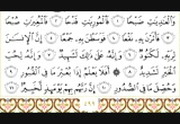 وَٱلْعَٰدِيَٰتِ ضَبْحًا ١ فَٱلْمُورِيَٰتِ قَدْحًا ٢ فَٱلْمُغِيرَٰتِ صُبْحًا
٣ فَأَثَرْنَ بِهِۦ نَقْعًا ٤ فَوَسَطْنَ بِهِۦ جَمْعًا ٥ إِنَّ ٱلْإِنسَٰنَ
لِرَبِّهِۦ لَكَنُودٌ ٦ وَإِنَّهُۥ عَلَىٰ ذَٰلِكَ لَشَهِيدٌ ٧ وَإِنَّهُۥ لِحُبِّ
ٱلْخَيْرِ لَشَدِيدٌ ٨ أَفَلَا يَعْلَمُ إِذَا بُعْثِرَ مَا فِى ٱلْقُبُورِ ٩
وَحُصِّلَ مَا فِى ٱلصُّدُورِ ١٠ إِنَّ رَبَّهُم بِهِمْ يَوْمَئِذٍ لَّخَبِيرٌ ١١
٤٩٩